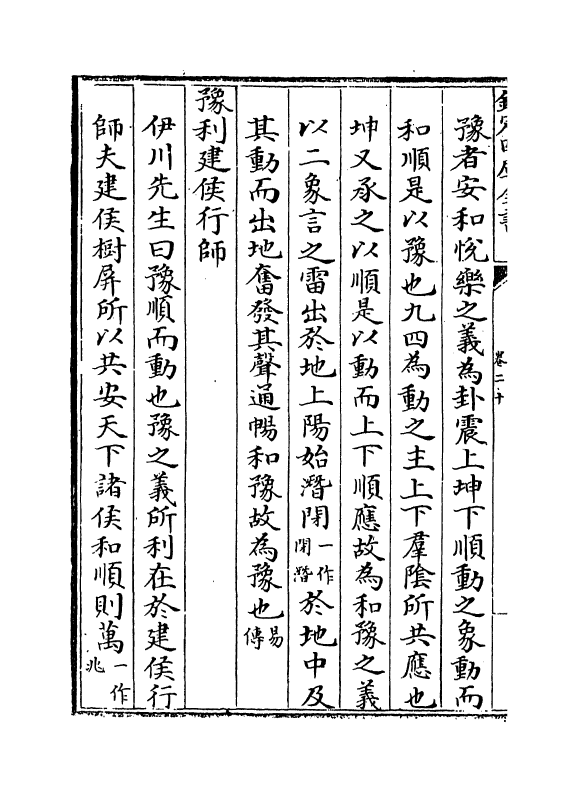 欽定四庫全書
卷二十
豫者安和悅樂之義為卦震上坤下順動之象動而
和順是以豫也九四為動之主上下羣陰所共應也
坤又承之以順是以動而上下順應故為和豫之義
以二象言之雷出於地上陽始潛閉一作閉潛於地中及
其動而出地奮發其聲通暢和豫故為豫也易傳
豫利建侯行師
伊川先生曰豫順而動也豫之義所利在於建侯行
師夫建侯樹屏所以共安天下諸侯和順則萬一作兆